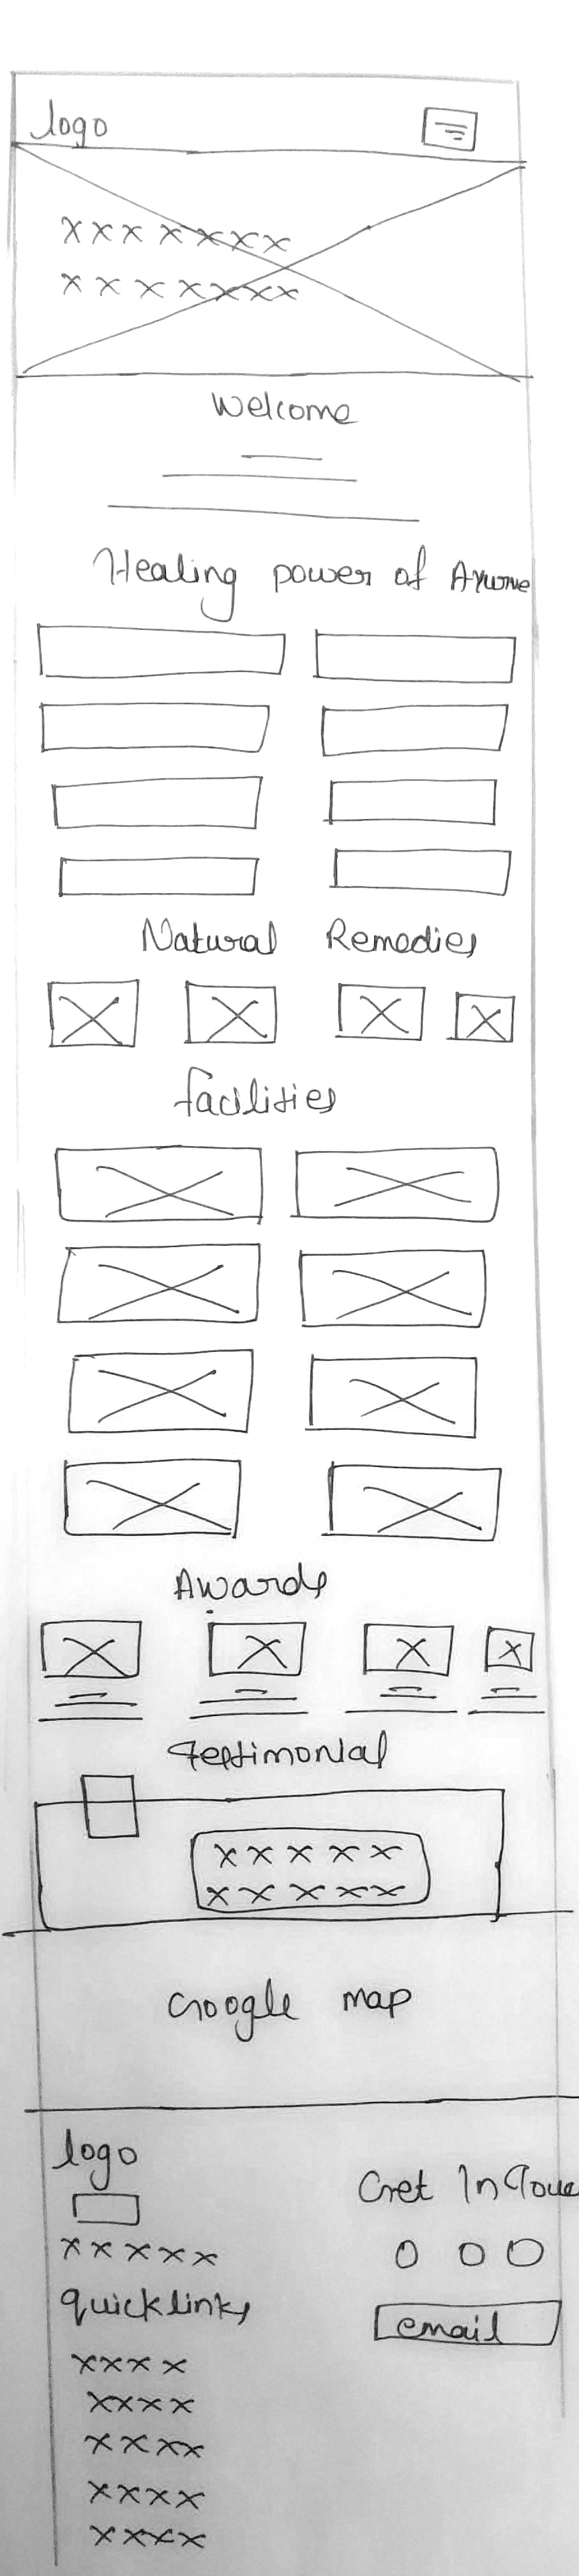 logo
x x x x x x x
x x x x x x x
Welcome
Healing power of Ayurve
Natural Remedies
facilities
Awards
Testimonial
x x x x x
x x x x x
Google map
logo
x x x x x
Get In Touc
quicklinks
email
x x x x
x x x x
x x x x
x x x x
x x x x